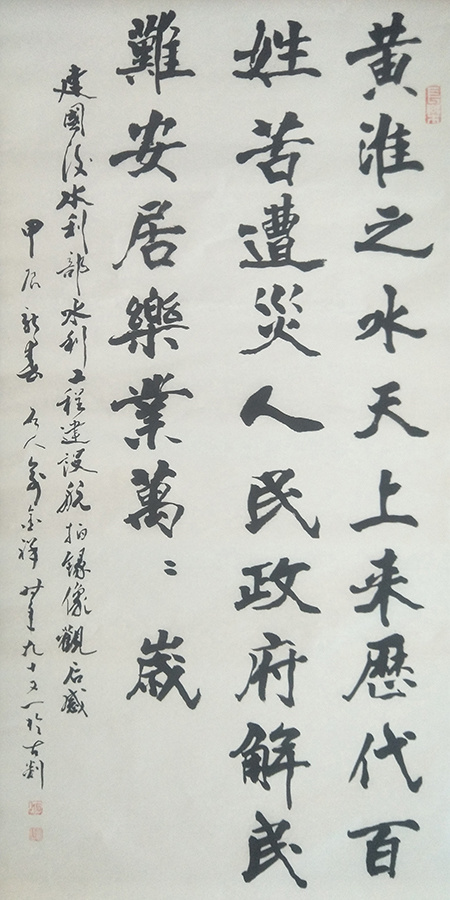 黄淮之水天上来歷代百
姓苦遭災人民政府解民
難安居樂業萬〻歲
建國後水利部水利工程建設航拍録像觀后感
甲辰新春 石人 金祥 时年九十又一於古剡